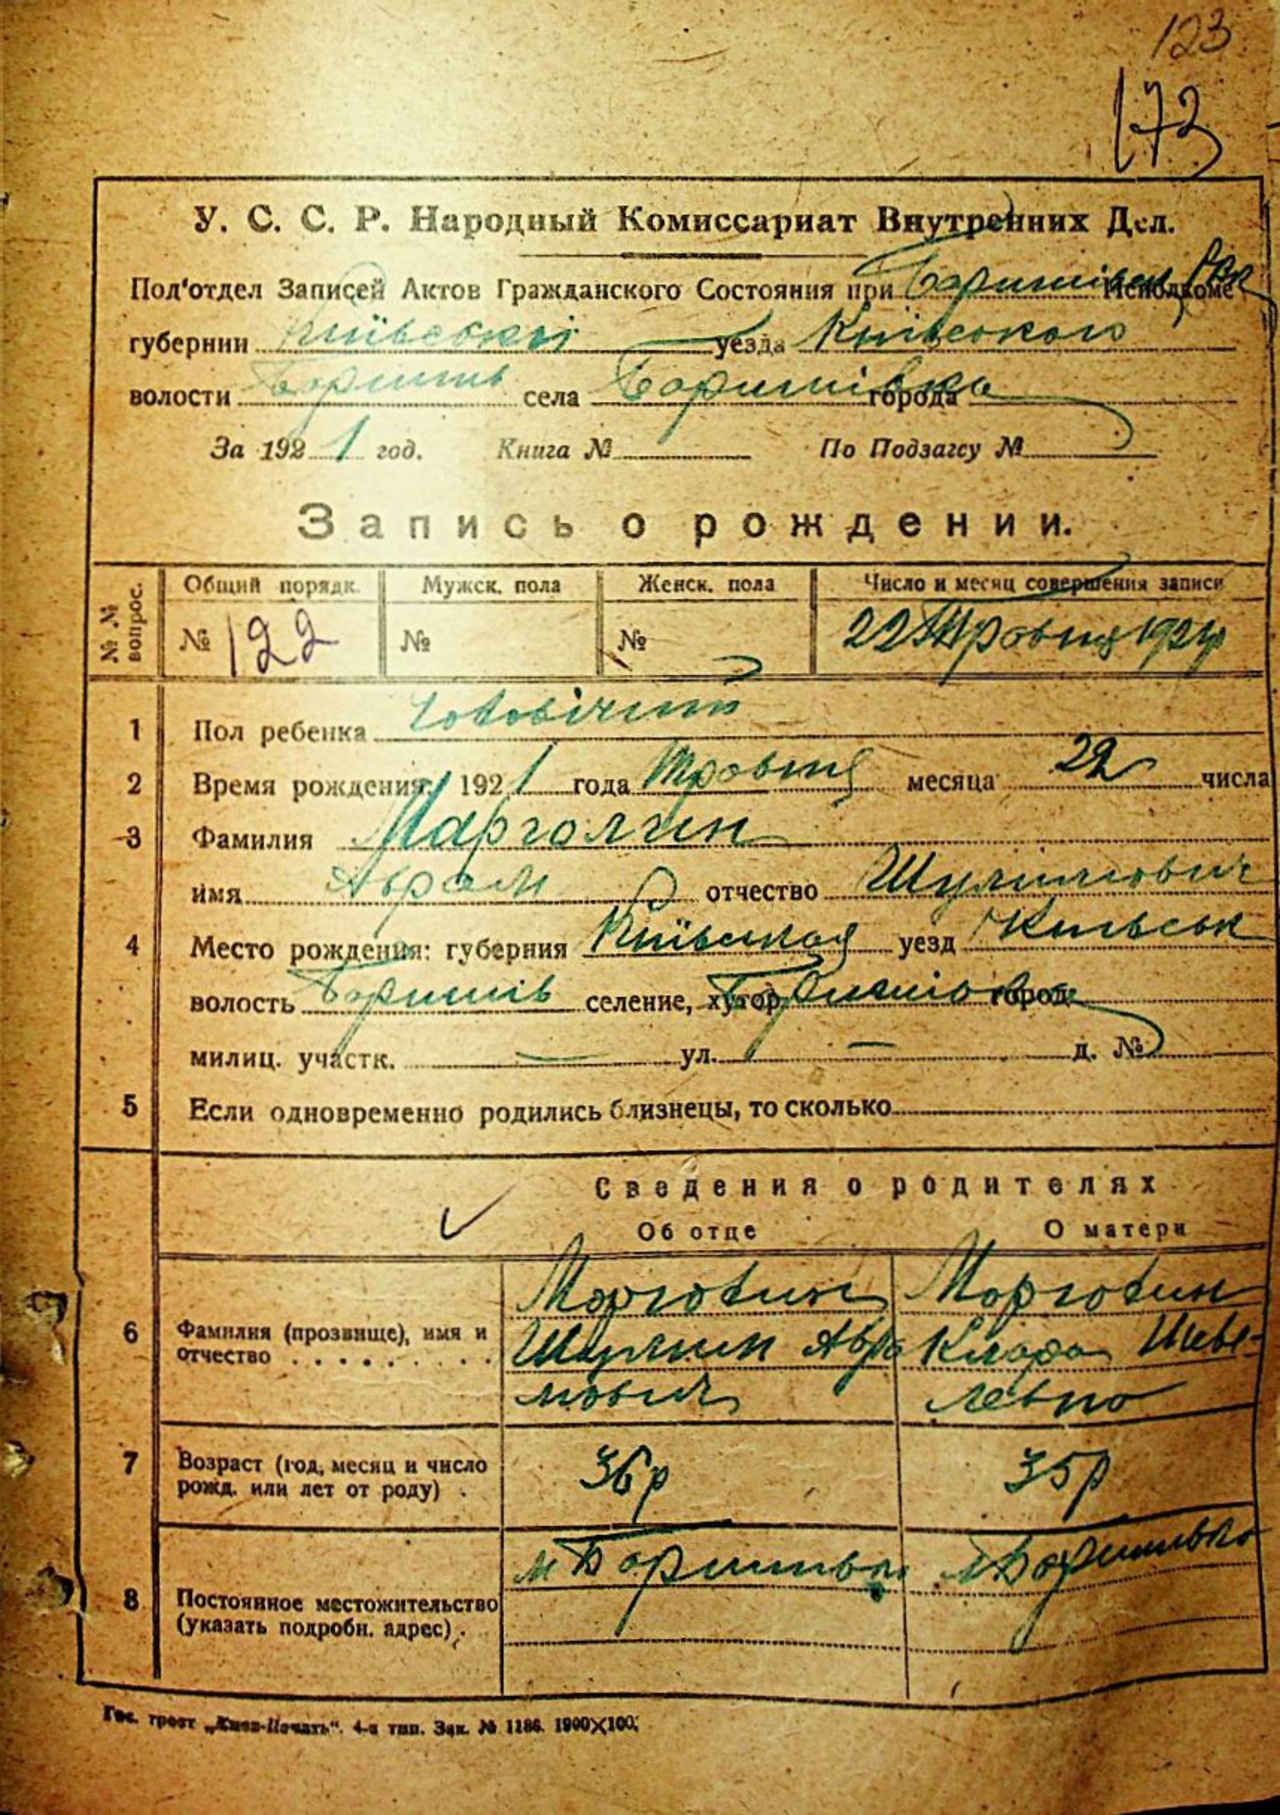 123
173
У. С. С. Р. Народный Комиссариат Внутренних Дел.
Под'отдел Записей Актов Гражданского Состояния при Исполкоме
губернии Київської уезда Київського
волости села Баришівка города
За 1921 год. Книга № По Подзагсу №
Запись о рождении.
№№ вопрос.
Общий порядк. Мужск. пола Женск. пола Число и месяц совершения записи
№ 122 № № 22 Травня
1 Пол ребенка Чоловічий
2 Время рождения: 1921 года Травня месяца 22 числа
3 Фамилия Марголин
имя Абрам отчество Шулимович
4 Место рождения: губерния уезд Київськ
волость селение, хутор город
милиц. участк. — ул. — д. №
5 Если одновременно родились близнецы, то сколько
Сведения о родителях
Об отце О матери
Марголин Марголин
6 Фамилия (прозвище), имя и отчество Шулим Абра Клара
мович
7 Возраст (год, месяц и число рожд. или лет от роду) 36р 35р
8 Постоянное местожительство (указать подробн. адрес) м
Гос. трест „Киев-Печать“. 4-я тип. Зак. № 1186. 1900×100.